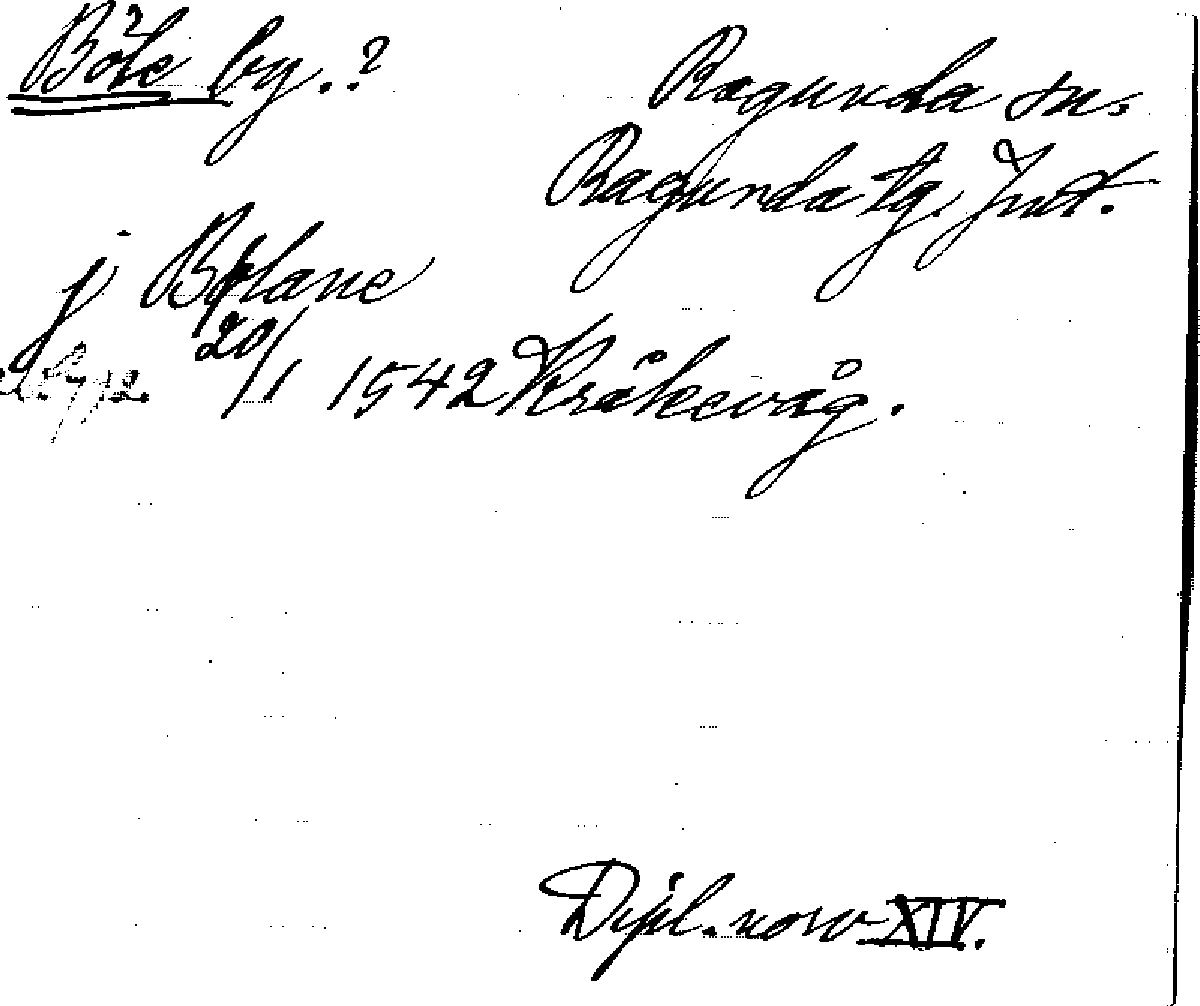 Böle by.?
Ragunda sn.
Ragunda tg. Jmt.
j Bølane
20/1 1542 Kråkevåg.
Dipl. norv XIV.